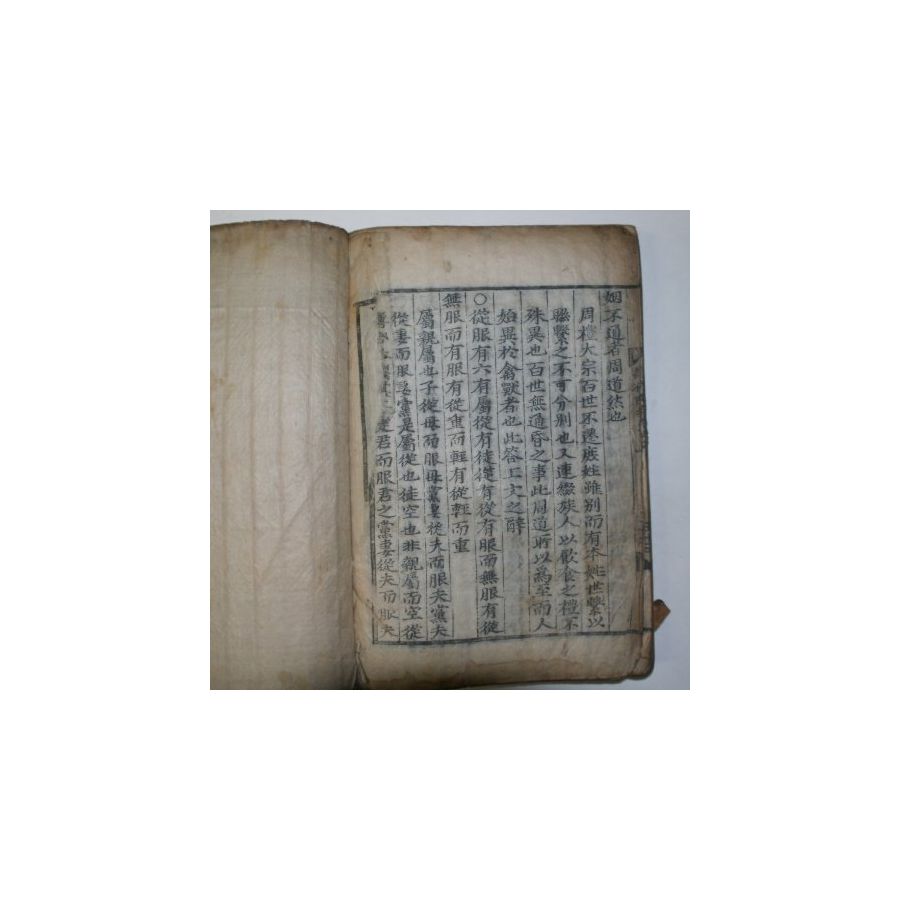 姻不通者周道然也
周禮大宗百世不遷庶姓雖別而有本姓世繫以
聯繫之不可分別也又連綴族人以飮食之禮不
殊異也百世無通昏之事此周道所以爲至而人
始異於禽獸者也此答上文之辭
○從服有六有屬從有徒從有從有服而無服有從
無服而有服有從重而輕有從輕而重
屬親屬也子從母而服母黨妻從夫而服夫黨夫
從妻而服妻黨是屬從也徒空也非親屬而空從
君而服君之黨妻從夫而服夫